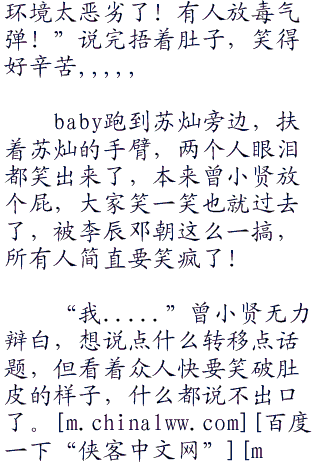 环境太恶劣了！有人放毒气
弹！”说完捂着肚子，笑得
好辛苦,,,,,
baby跑到苏灿旁边，扶
着苏灿的手臂，两个人眼泪
都笑出来了，本来曾小贤放
个屁，大家笑一笑也就过去
了，被李辰邓朝这么一搞，
所有人简直要笑疯了！
“我.....”曾小贤无力
辩白，想说点什么转移点话
题，但看着众人快要笑破肚
皮的样子，什么都说不出口
了。[m.china1ww.com][百度
一下“侠客中文网”][m